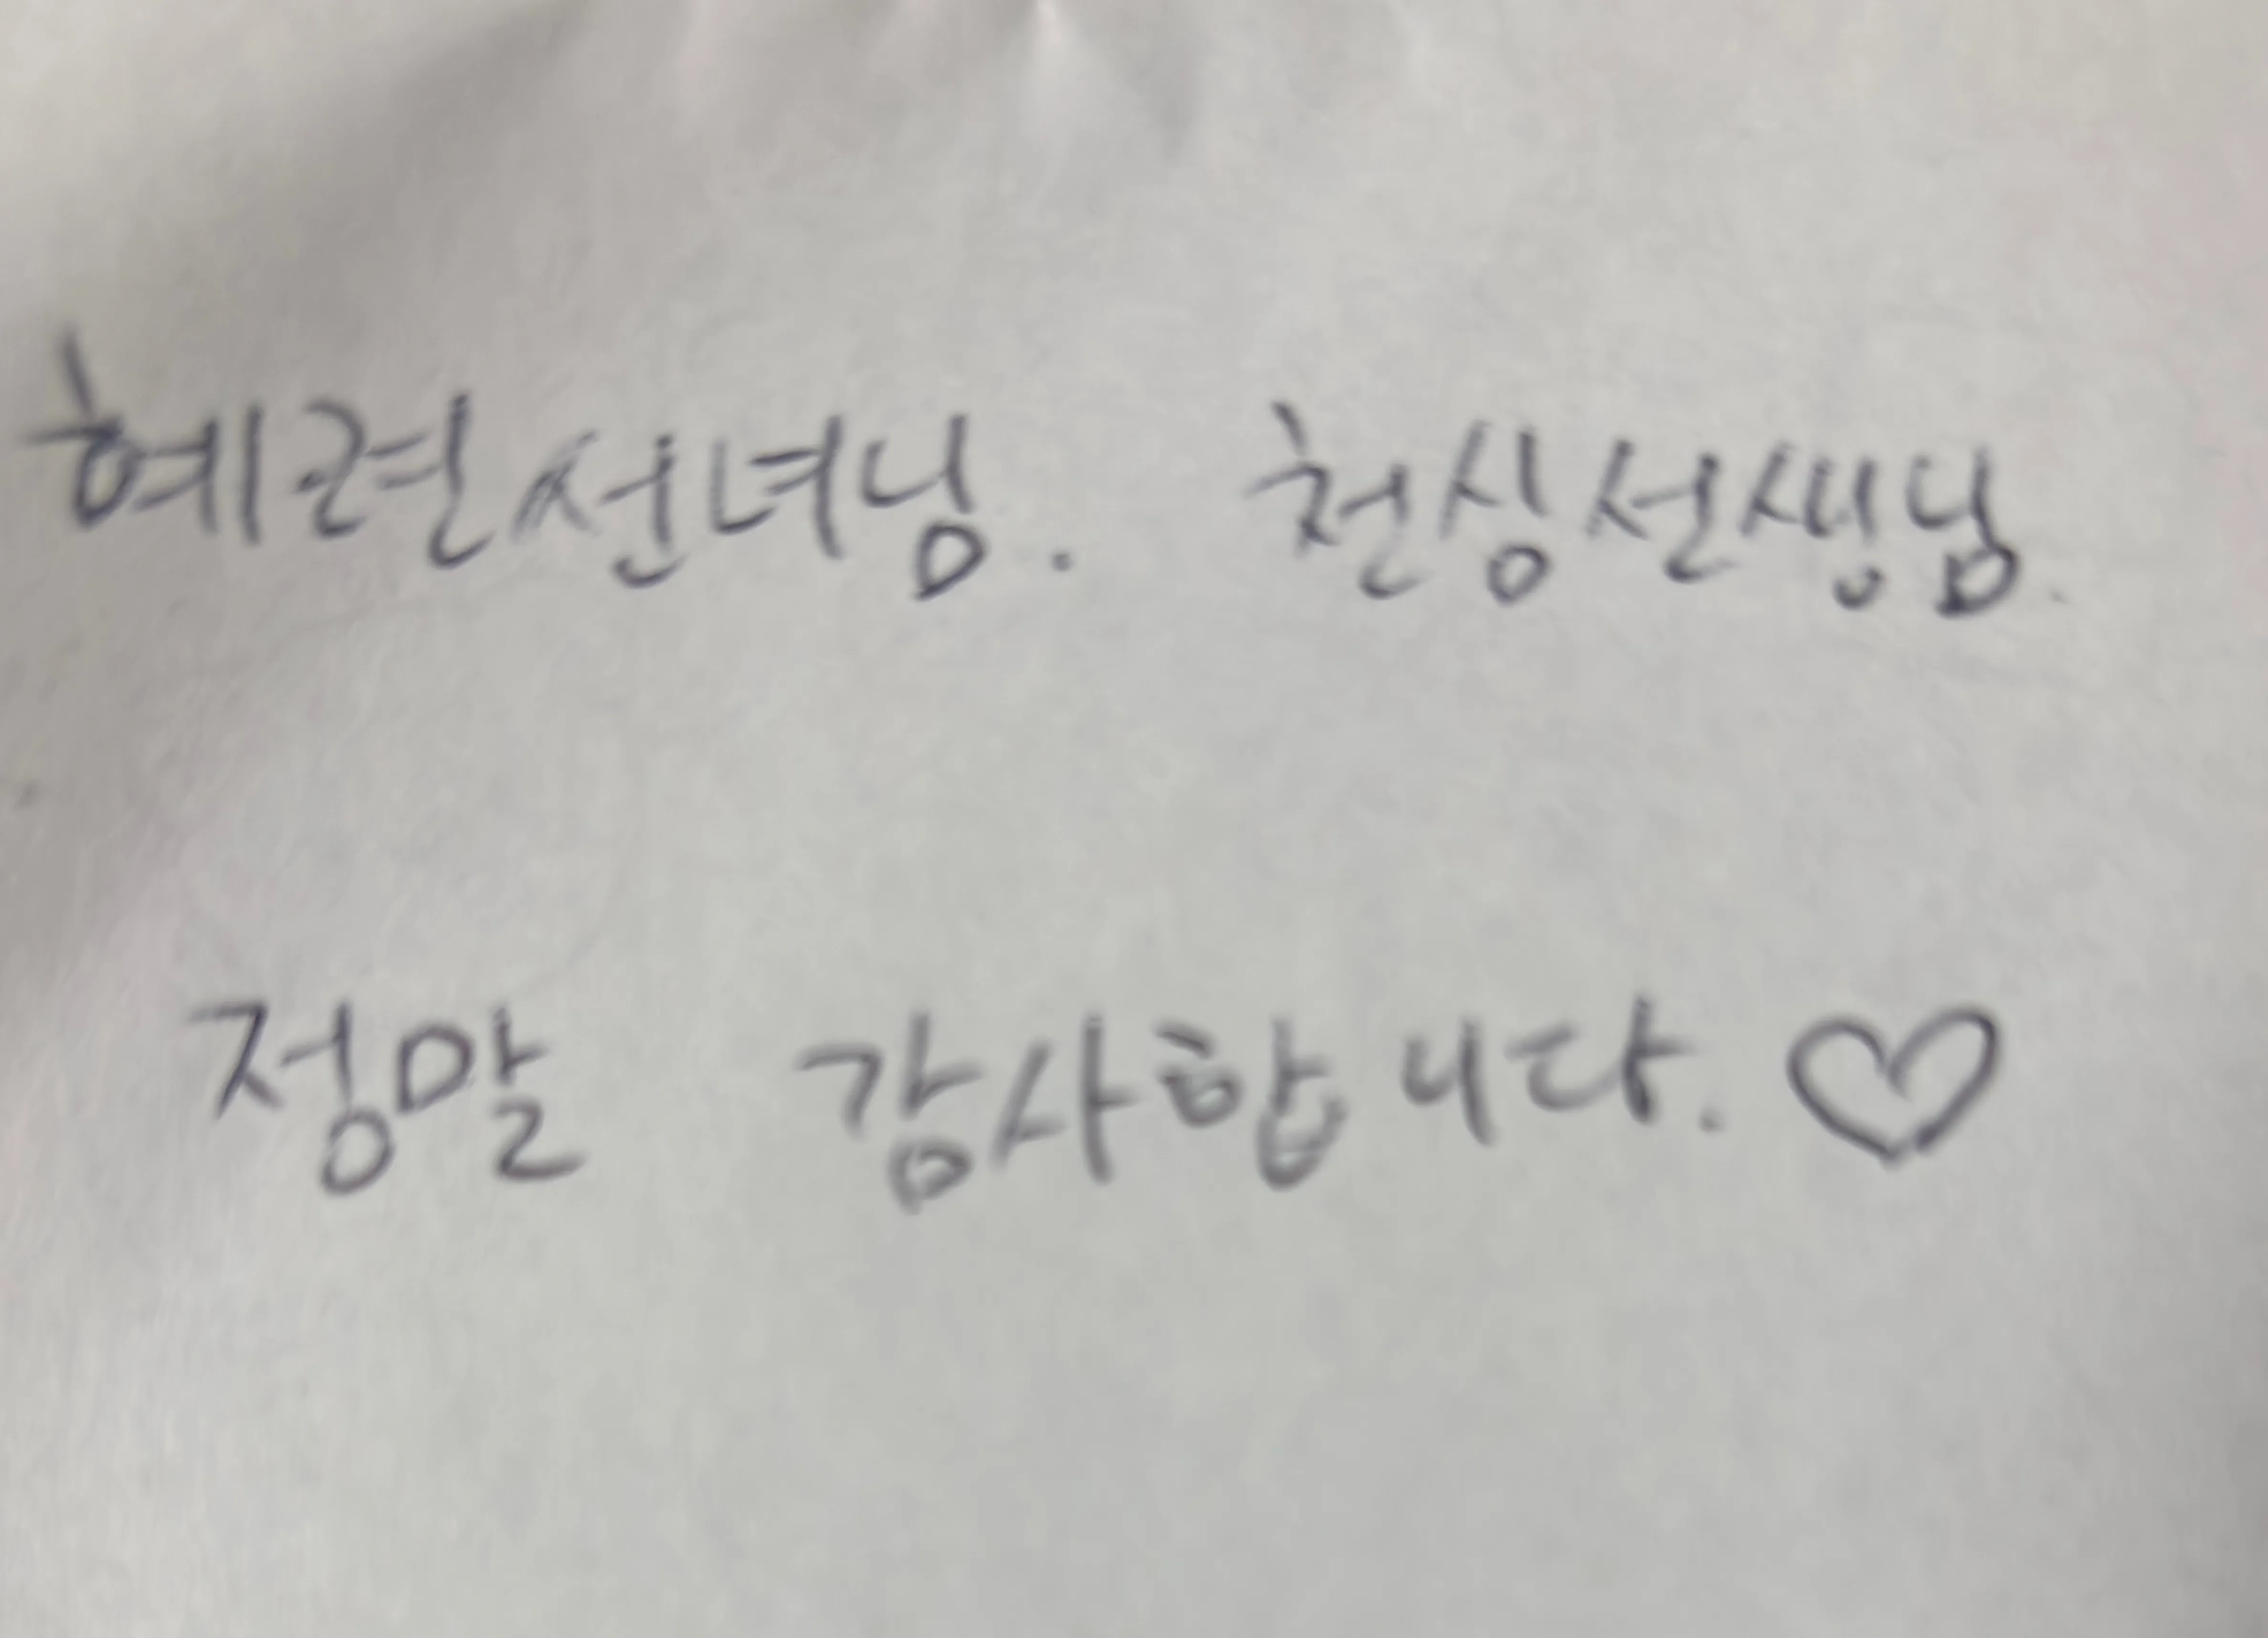 혜련선녀님. 천싱선생님.
정말 감사합니다.♡